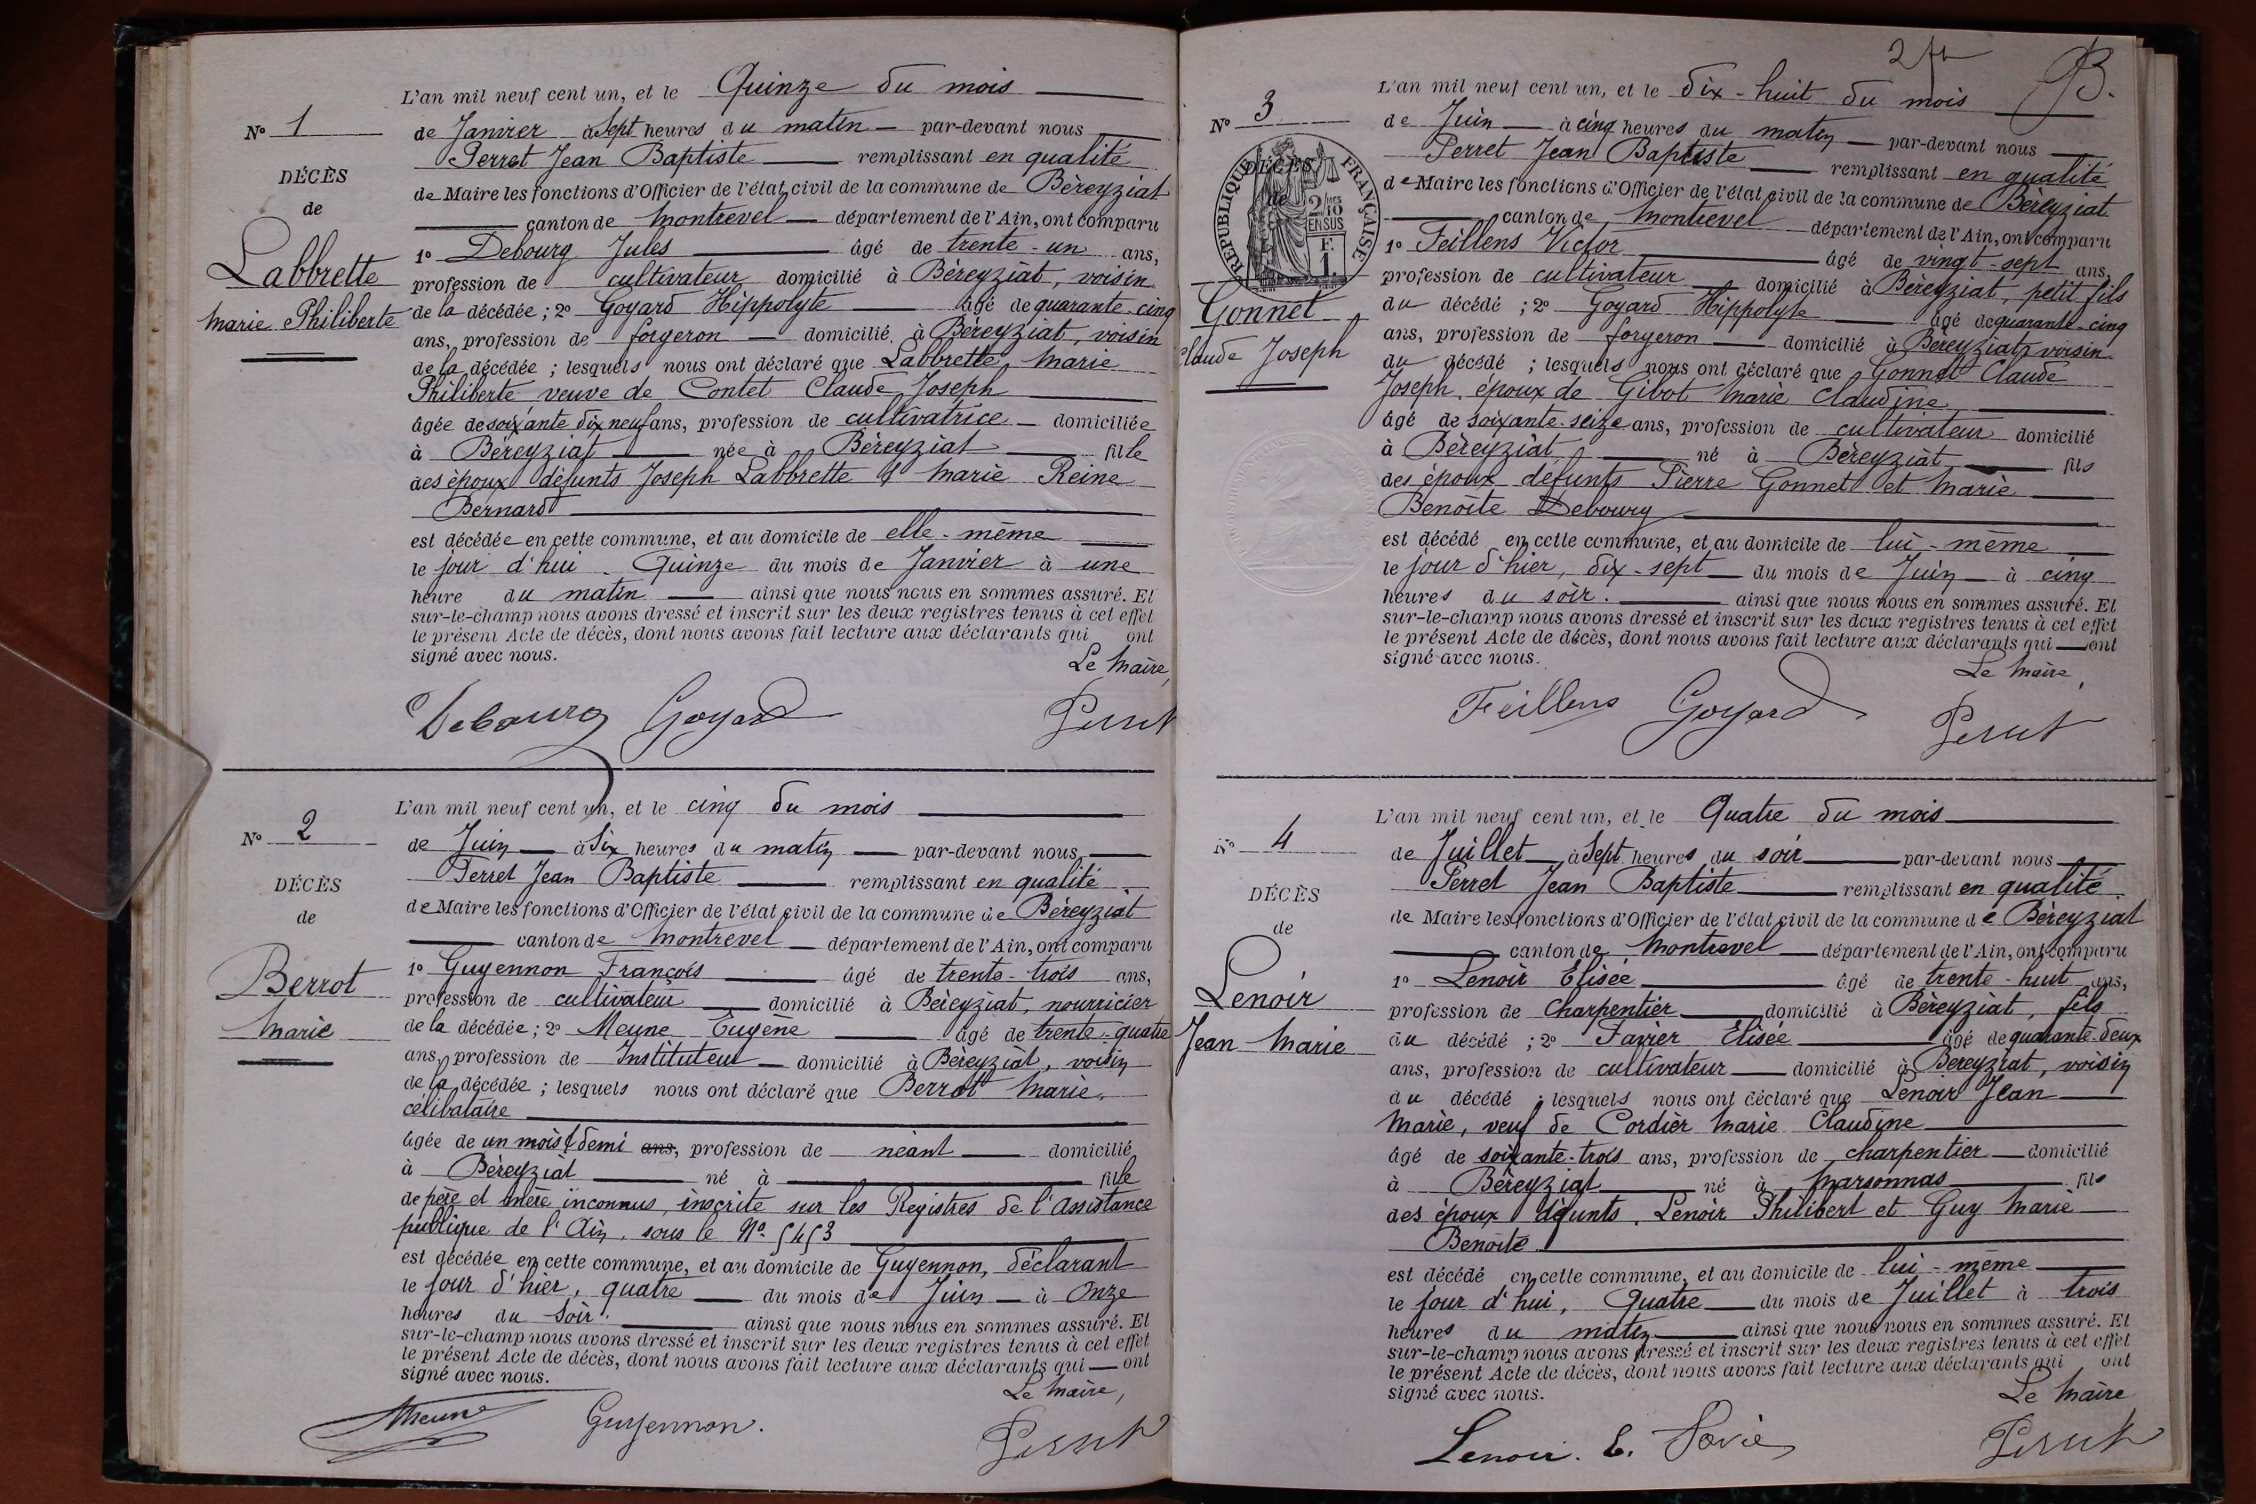 L'an mil neuf cent un, et le Quinze du mois
N° 1
de Janvier à Sept heures du matin par-devant nous
Perret Jean Baptiste remplissant en qualité
DÉCÈS
de Maire les fonctions d'Officier de l'état civil de la commune de Béreyziat
de
canton de Montrevel département de l'Ain, ont comparu
Labbrette
1° Debourg Jules âgé de trente-un ans,
profession de cultivateur domicilié à Béreyziat, voisin
Marie Philiberte
de la décédée ; 2° Goyard Hippolyte âgé de quarante-cinq
ans, profession de forgeron domicilié à Béreyziat, voisin
de la décédée ; lesquels nous ont déclaré que Labbrette Marie
Philiberte veuve de Contet Claude Joseph
âgée de soixante dix neuf ans, profession de cultivatrice domiciliée
à Béreyziat née à Béreyziat fille
des époux défunts Joseph Labbrette & Marie Reine
Bernard
est décédée en cette commune, et au domicile de elle-même
le jour d'hui Quinze du mois de Janvier à une
heure du matin ainsi que nous nous en sommes assuré. Et
sur-le-champ nous avons dressé et inscrit sur les deux registres tenus à cet effet
le présent Acte de décès, dont nous avons fait lecture aux déclarants qui ont
signé avec nous.
Le Maire,
Debourg Goyard Perret
L'an mil neuf cent un, et le cinq du mois
N° 2
de Juin à Six heures du matin par-devant nous
Perret Jean Baptiste remplissant en qualité
DÉCÈS
de Maire les fonctions d'Officier de l'état civil de la commune de Béreyziat
de
canton de Montrevel département de l'Ain, ont comparu
Berrot
1° Guyennon François âgé de trente-trois ans,
profession de cultivateur domicilié à Béreyziat, nourricier
Marie
de la décédée ; 2° Meune Eugène âgé de trente-quatre
ans, profession de Instituteur domicilié à Béreyziat, voisin
de la décédée ; lesquels nous ont déclaré que Berrot Marie,
célibataire
âgée de un mois & demi ans, profession de néant domicilié
à Béreyziat né à fille
de père et mère inconnus, inscrite sur les Registres de l'assistance
publique de l'Ain, sous le N° 5453
est décédée en cette commune, et au domicile de Guyennon, déclarant
le jour d'hier, quatre du mois de Juin à Onze
heures du Soir ainsi que nous nous en sommes assuré. Et
sur-le-champ nous avons dressé et inscrit sur les deux registres tenus à cet effet
le présent Acte de décès, dont nous avons fait lecture aux déclarants qui ont
signé avec nous.
Le Maire,
Meune Guyennon. Perret
2
B.
L'an mil neuf cent un, et le dix-huit du mois
N° 3
de Juin à cinq heures du matin par-devant nous
Perret Jean Baptiste remplissant en qualité
DÉCÈS
de
RÉPUBLIQUE FRANÇAISE
2/10
EN SUS
F.
1.
de Maire les fonctions d'Officier de l'état civil de la commune de Béreyziat
canton de Montrevel département de l'Ain, ont comparu
1° Feillens Victor âgé de vingt-sept ans,
profession de cultivateur domicilié à Béreyziat, petit fils
Gonnet
du décédé ; 2° Goyard Hippolyte âgé de quarante-cinq
Claude Joseph
ans, profession de forgeron domicilié à Béreyziat, voisin
du décédé ; lesquels nous ont déclaré que Gonnet Claude
Joseph, époux de Gibot Marie Claudine
âgé de soixante-seize ans, profession de cultivateur domicilié
à Béreyziat né à Béreyziat fils
des époux défunts Pierre Gonnet et Marie
Benoîte Debourg
est décédé en cette commune, et au domicile de lui-même
le jour d'hier, dix-sept du mois de Juin à cinq
heures du soir. ainsi que nous nous en sommes assuré. Et
sur-le-champ nous avons dressé et inscrit sur les deux registres tenus à cet effet
le présent Acte de décès, dont nous avons fait lecture aux déclarants qui ont
signé avec nous.
Le Maire,
Feillens Goyard Perret
L'an mil neuf cent un, et le Quatre du mois
N° 4
de Juillet à Sept heures du soir par-devant nous
Perret Jean Baptiste remplissant en qualité
DÉCÈS
de Maire les fonctions d'Officier de l'état civil de la commune de Béreyziat
de
canton de Montrevel département de l'Ain, ont comparu
Lenoir
1° Lenoir Elisée âgé de trente-huit ans,
profession de charpentier domicilié à Béreyziat, fils
Jean Marie
du décédé ; 2° Favier Elisée âgé de quarante-deux
ans, profession de cultivateur domicilié à Béreyziat, voisin
du décédé ; lesquels nous ont déclaré que Lenoir Jean
Marie, veuf de Cordier Marie Claudine
âgé de soixante-trois ans, profession de charpentier domicilié
à Béreyziat né à Marsonnas fils
des époux défunts, Lenoir Philibert et Guy Marie
Benoîte
est décédé en cette commune, et au domicile de lui-même
le jour d'hui, Quatre du mois de Juillet à trois
heures du matin ainsi que nous nous en sommes assuré. Et
sur-le-champ nous avons dressé et inscrit sur les deux registres tenus à cet effet
le présent Acte de décès, dont nous avons fait lecture aux déclarants qui ont
signé avec nous.
Le Maire
Lenoir. E. Favier Perret